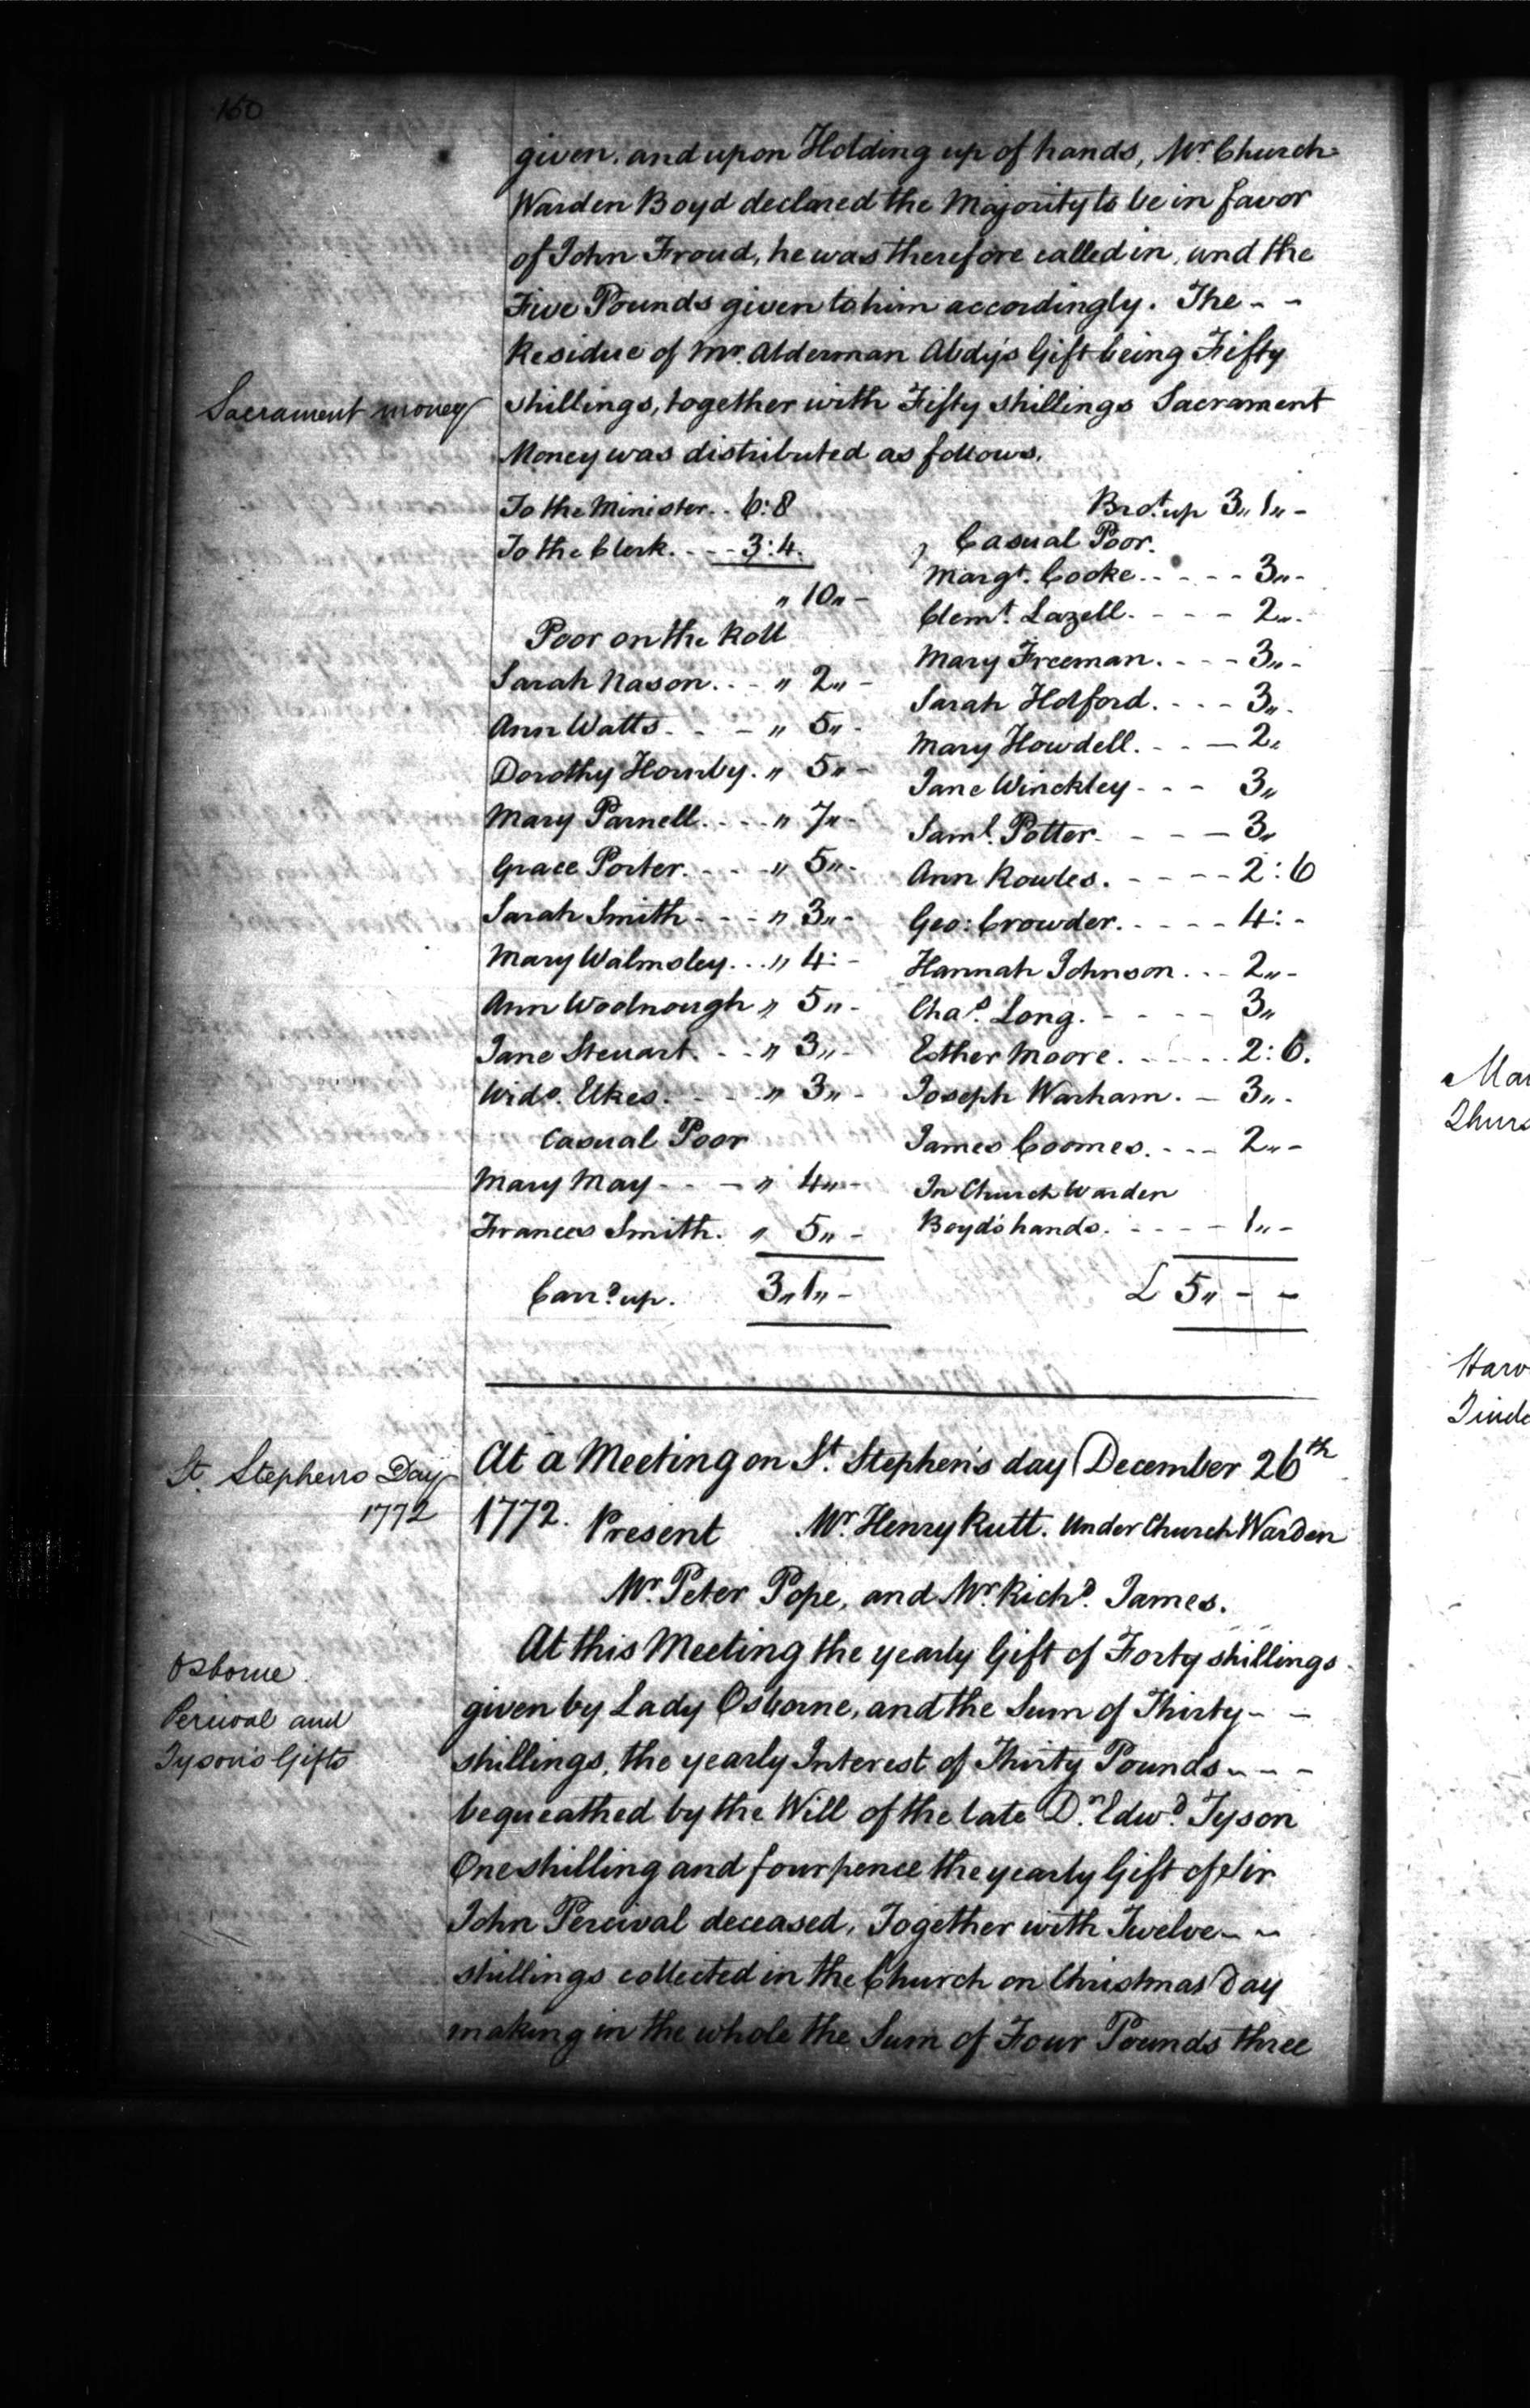 150
given, and upon Holding up of hands, Mr. Church=
Warden Boyd declared the Majority to be in favor
of John Froud, he was therefore called in, and the
Five Pounds given to him accordingly. The - -
Residue of Mr. Alderman Abdy's Gift being Fifty
Sacrament money
shillings, together with Fifty shillings Sacrament
Money was distributed as follows.
To the Minister.. 6:8
To the Clerk. - - - 3:4.
" 10 " -
Poor on the Roll
Sarah Nason. . - " 2 " -
Ann Watts. - - " 5 " -
Dorothy Hornby. " 5 " -
Mary Parnell. - - " 7 " -
Grace Porter. - - - " 5 " -
Sarah Smith - - - " 3 " -
Mary Walmsley. . . " 4 : -
Ann Woolnough " 5 " -
Jane Steuart. - - " 3 " -
Widо. Elkes. - - - " 3 " -
Casual Poor
Mary May - - - " 4 " -
Frances Smith. " 5 " -
Carrd. up. 3 " 1 " -
Brot. up 3 " 1 " -
Casual Poor.
Margt. Cooke. - - - - 3 " -
Clemt. Lazell. - - - - 2 " -
Mary Freeman. - - - 3 " -
Sarah Holford. - - - 3 " -
Mary Howdell. - - - 2 "
Jane Winckley - - - 3 "
Saml. Potter. - - - 3 "
Ann Rowles. - - - - 2 : 6
Geo: Crowder. - - - - 4 : -
Hannah Johnson. . . 2 " -
Chas. Long. - - - - 3 "
Esther Moore. - - - - 2 : 6.
Joseph Warham. - 3 " -
James Coomes. - - - 2 " -
In Church Warden
Boyd's hands. - - - - 1 " -
£ 5 " - -
St. Stephens Day
1772
At a Meeting on St. Stephen's day December 26th
1772. Present Mr. Henry Rutt. Under Church Warden
Mr. Peter Pope, and Mr. Richd. James.
Osborne
Percival and
Tyson's Gifts
At this Meeting the yearly Gift of Forty shillings
given by Lady Osborne, and the Sum of Thirty - -
shillings, the yearly Interest of Thirty Pounds - - -
bequeathed by the Will of the late Dr. Edwd. Tyson
One shilling and fourpence the yearly Gift of Sir
John Percival deceased, Together with Twelve - -
shillings collected in the Church on Christmas Day
making in the whole the Sum of Four Pounds three